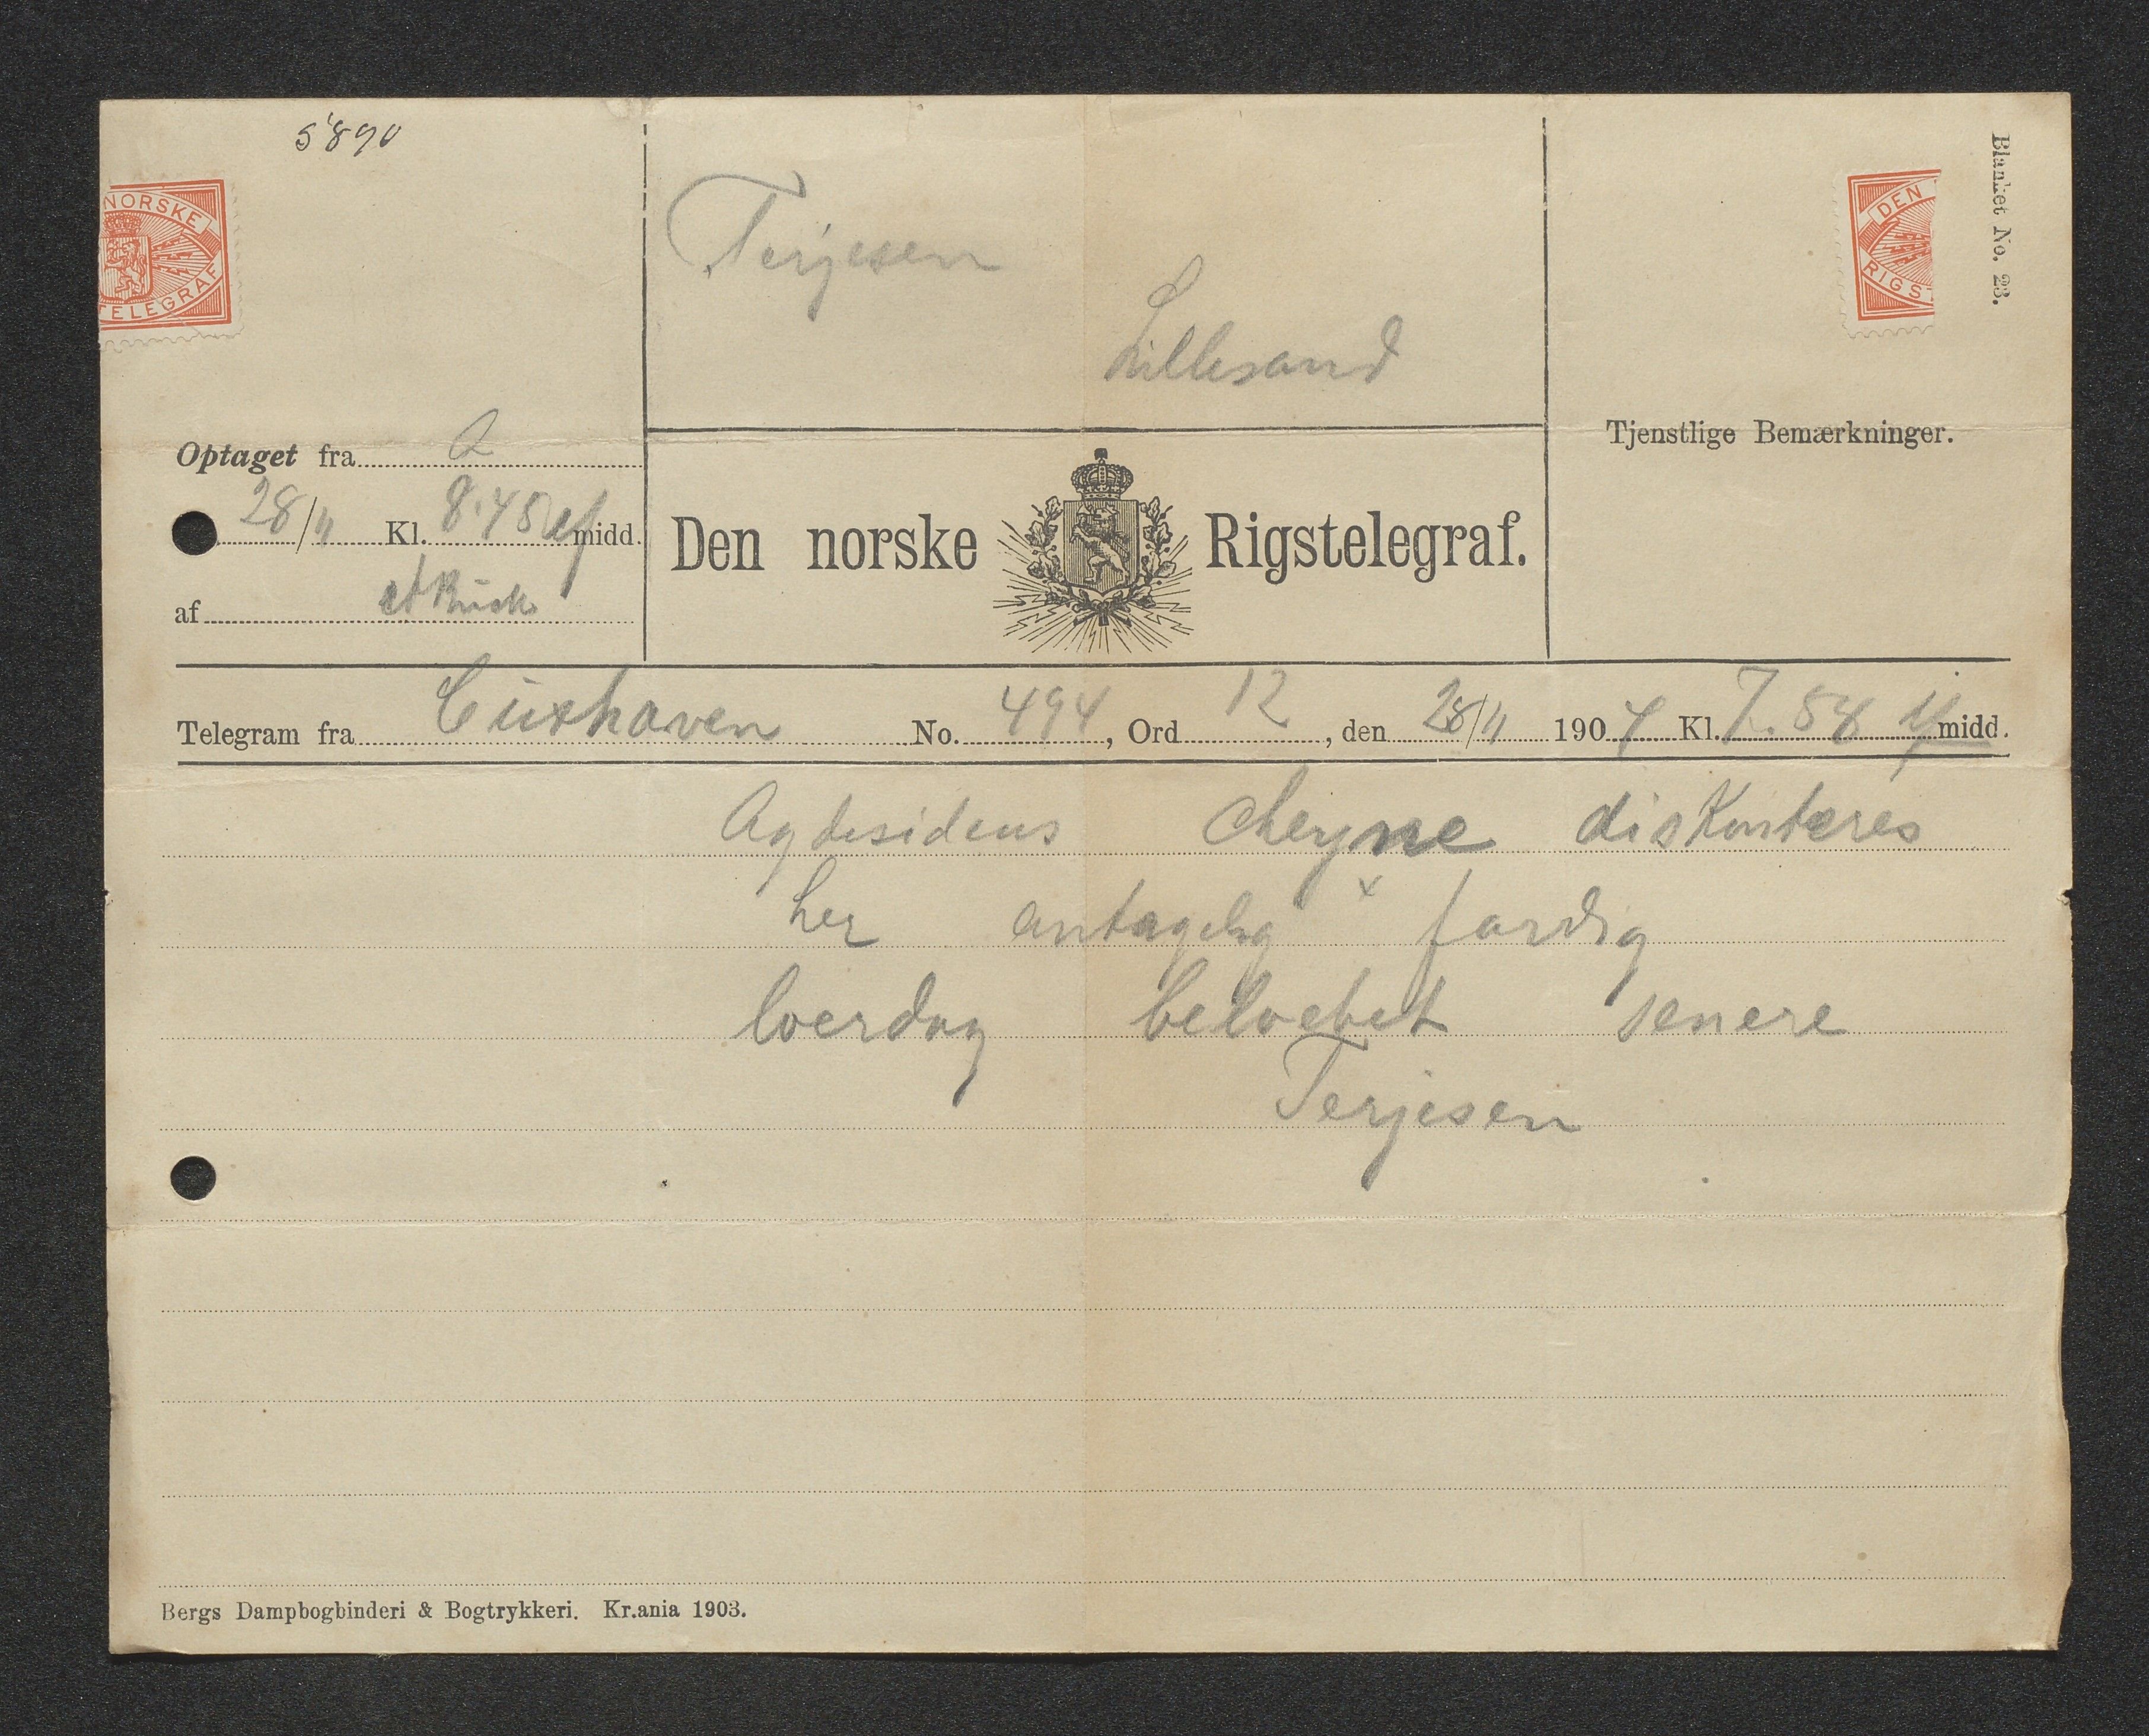 5890
NORSKE
TELEGRAF
DEN
RIGST
Blanket No. 23.
Terjesen
Lillesand
Optaget fra A
28/11 Kl. 8.45 ef midd.
af
Tjenstlige Bemærkninger.
Den norske Rigstelegraf.
Telegram fra Cuxhaven No. 494, Ord 12, den 28/11 1904 Kl. 7.54 ef midd.
Agdesidens cheyne diskonteres
her antagelig x fardig
loerdag beloebet senere
Terjesen
Bergs Dampbogbinderi & Bogtrykkeri. Kr.ania 1903.